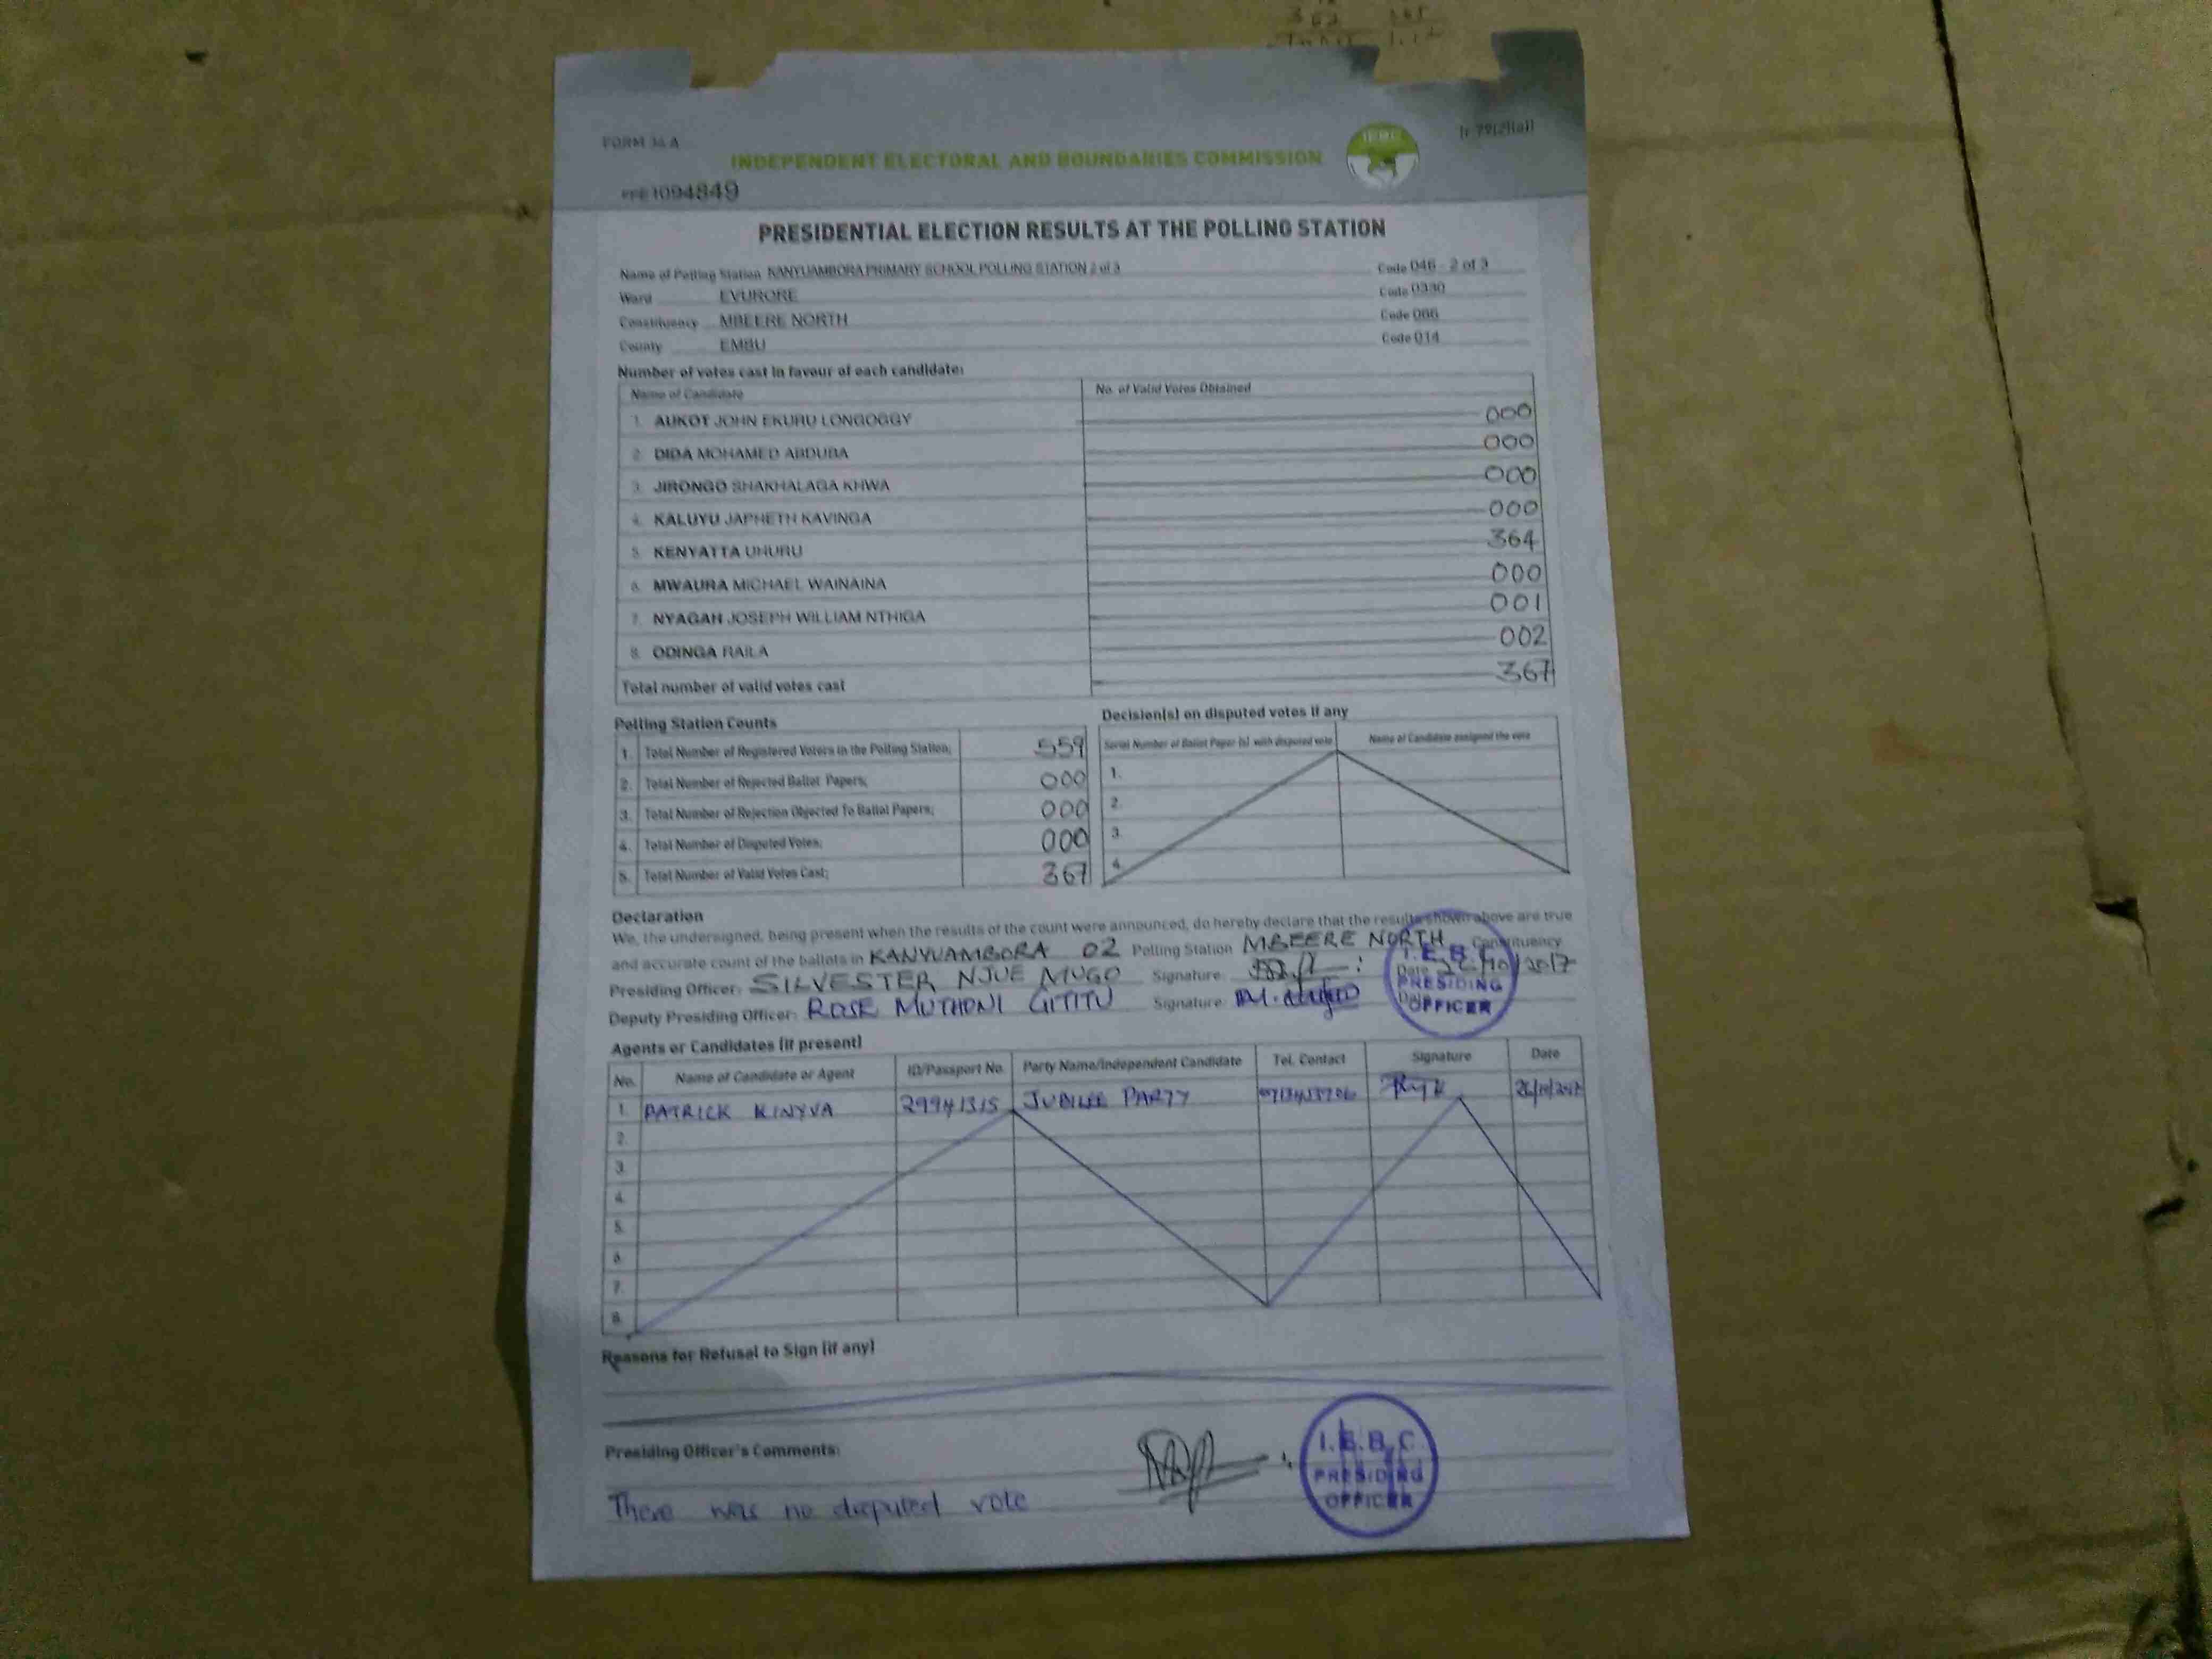 FORM 34 A
INDEPENDENT ELECTORAL AND BOUNDARIES COMMISSION
1094849
PRESIDENTIAL ELECTION RESULTS AT THE POLLING STATION
Name of Polling Station KANYUAMBORA PRIMARY SCHOOL POLLING STATION 2 of 3 Code 046 - 2 of 3
Ward EVURORE Code 0330
Constituency MBEERE NORTH Code 066
County EMBU Code 014
Number of votes cast in favour of each candidate:
Name of Candidate No. of Valid Votes Obtained
1. AUKOT JOHN EKURU LONGOGGY 000
2. DIDA MOHAMED ABDUBA 000
3. JIRONGO SHAKHALAGA KHWA 000
4. KALUYU JAPHETH KAVINGA 000
5. KENYATTA UHURU 364
6. MWAURA MICHAEL WAINAINA 000
7. NYAGAH JOSEPH WILLIAM NTHIGA 001
8. ODINGA RAILA 002
Total number of valid votes cast 367
Polling Station Counts
1. Total Number of Registered Voters in the Polling Station; 559
2. Total Number of Rejected Ballot Papers; 000
3. Total Number of Rejection Objected To Ballot Papers; 000
4. Total Number of Disputed Votes; 000
5. Total Number of Valid Votes Cast; 367
Decision(s) on disputed votes if any
Serial Number of Ballot Paper (s) with disputed vote Name of Candidate assigned the vote
1.
2.
3.
4.
Declaration
We, the undersigned, being present when the results of the count were announced, do hereby declare that the results shown above are true
and accurate count of the ballots in KANYUAMBORA 02 Polling Station MBEERE NORTH Constituency
Presiding Officer: SILVESTER NJUE MUGO Signature: Date /10/2017
Deputy Presiding Officer: ROSE MUTHONI GITITU Signature: Date
I.E.B.
PRESIDING
OFFICER
Agents or Candidates (if present)
No. Name of Candidate or Agent ID/Passport No. Party Name/Independent Candidate Tel. Contact Signature Date
1. PATRICK KINYVA 29941315 JUBILEE PARTY 26/10/2017
2.
3.
4.
5.
6.
7.
8.
Reasons for Refusal to Sign (if any)
Presiding Officer's Comments:
There was no disputed vote
I.E.B.C
PRESIDING
OFFICER